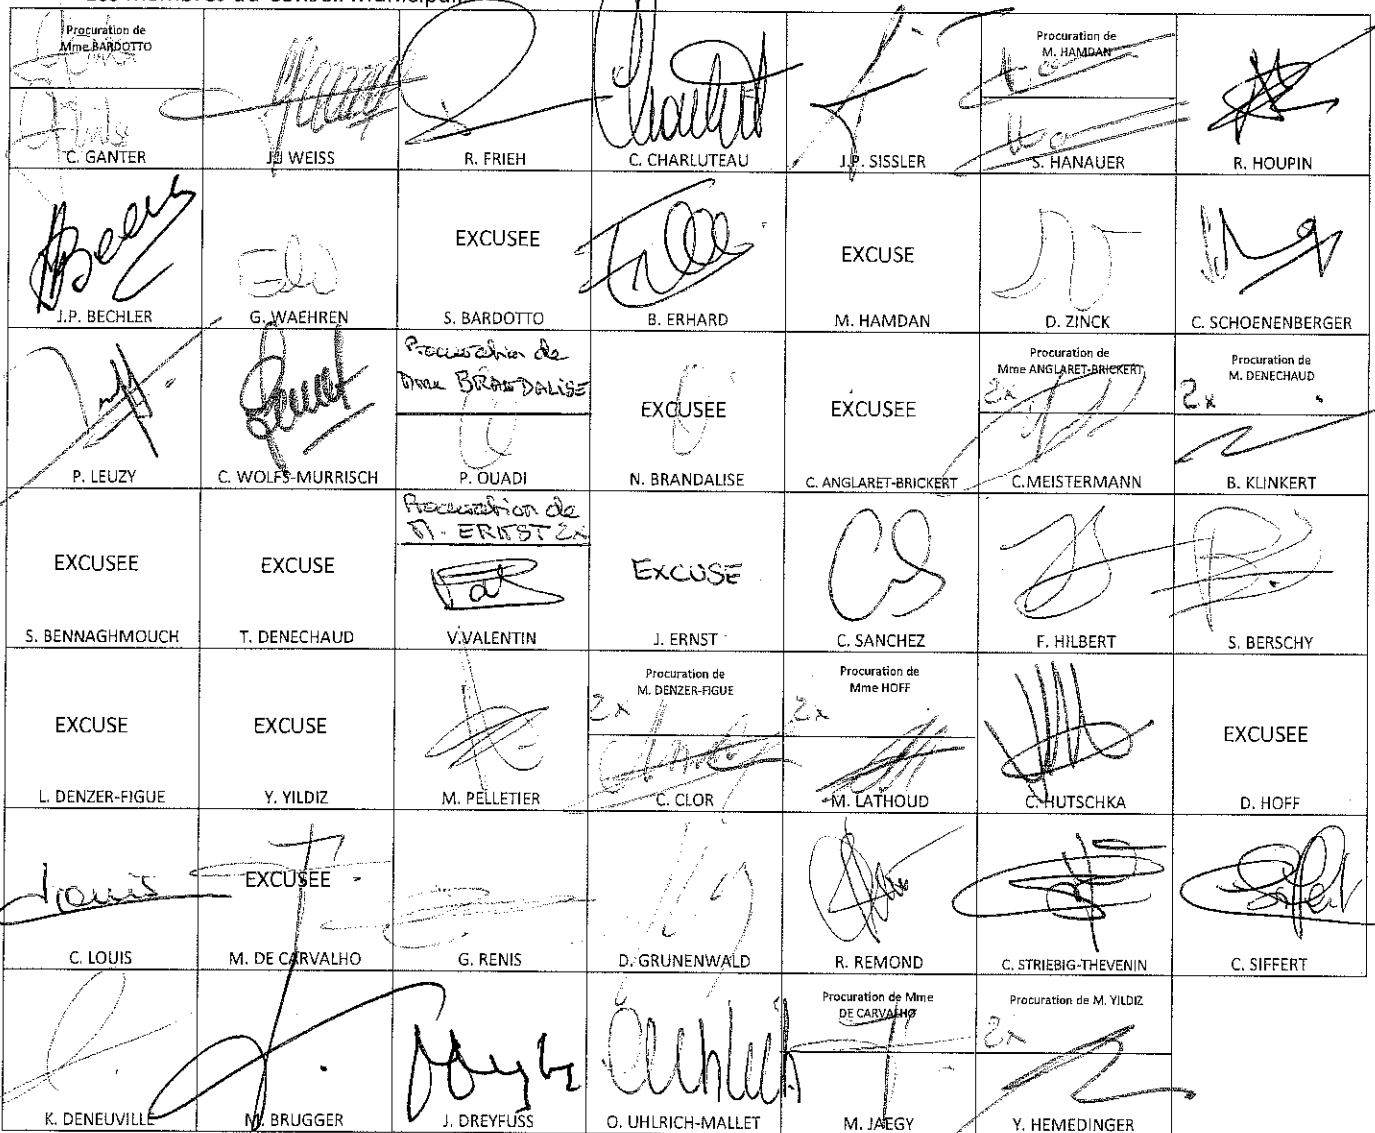 Les membres du Conseil Municipal
Procuration de
Mme BARDOTTO
C. GANTER
J. WEISS
R. FRIEH
C. CHARLUTEAU
J.P. SISSLER
Procuration de
M. HAMDAN
S. HANAUER
R. HOUPIN
J.P. BECHLER
G. WAEHREN
EXCUSEE
S. BARDOTTO
B. ERHARD
EXCUSE
M. HAMDAN
D. ZINCK
C. SCHOENENBERGER
P. LEUZY
C. WOLFS-MURRISCH
Procuration de
Mme BRANDALISE
P. OUADI
EXCUSEE
N. BRANDALISE
EXCUSEE
C. ANGLARET-BRICKERT
Procuration de
Mme ANGLARET-BRICKERT
2x
C.MEISTERMANN
Procuration de
M. DENECHAUD
2x
B. KLINKERT
EXCUSEE
S. BENNAGHMOUCH
EXCUSE
T. DENECHAUD
Procuration de
M. ERNST 2x
V.VALENTIN
EXCUSE
J. ERNST
C. SANCHEZ
F. HILBERT
S. BERSCHY
EXCUSE
L. DENZER-FIGUE
EXCUSE
Y. YILDIZ
M. PELLETIER
Procuration de
M. DENZER-FIGUE
2x
C. CLOR
Procuration de
Mme HOFF
2x
M. LATHOUD
C. HUTSCHKA
EXCUSEE
D. HOFF
Louis
C. LOUIS
EXCUSEE
M. DE CARVALHO
G. RENIS
D. GRUNENWALD
R. REMOND
C. STRIEBIG-THEVENIN
C. SIFFERT
K. DENEUVILLE
M. BRUGGER
J. DREYFUSS
O. UHLRICH-MALLET
Procuration de Mme
DE CARVALHO
M. JAEGY
Procuration de M. YILDIZ
2x
Y. HEMEDINGER